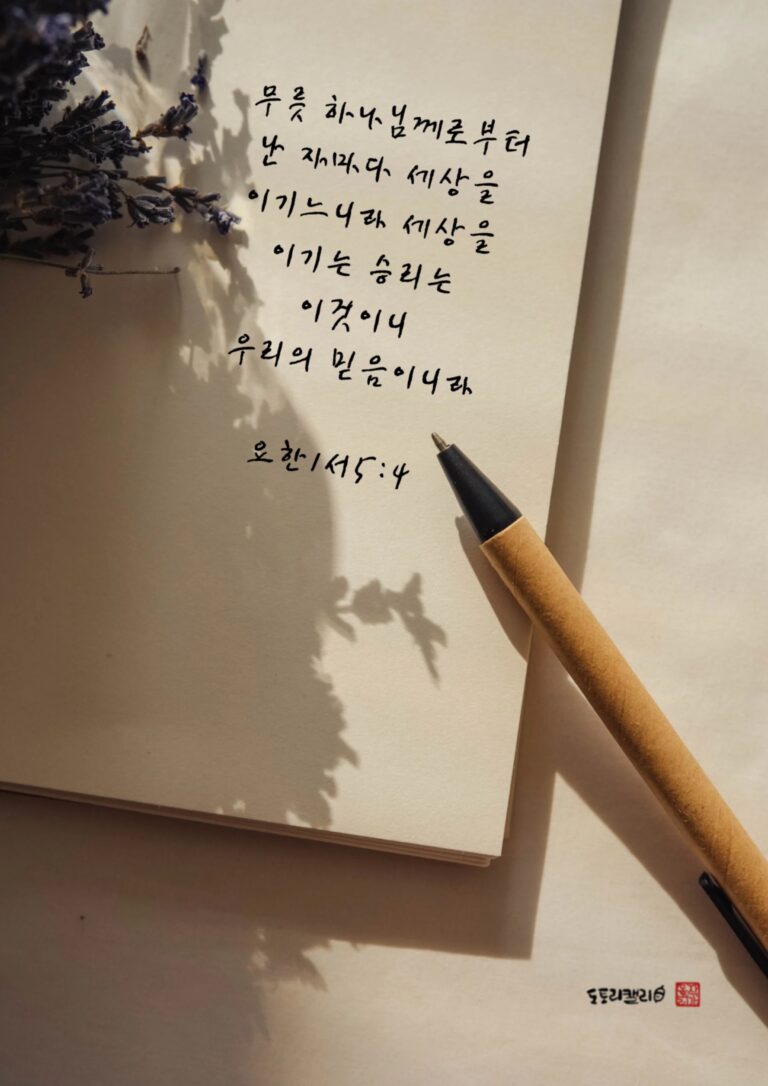 무릇 하나님께로부터
난 자마다 세상을
이기느니라 세상을
이기는 승리는
이것이니
우리의 믿음이니라
요한1서5:4
도토리캘리